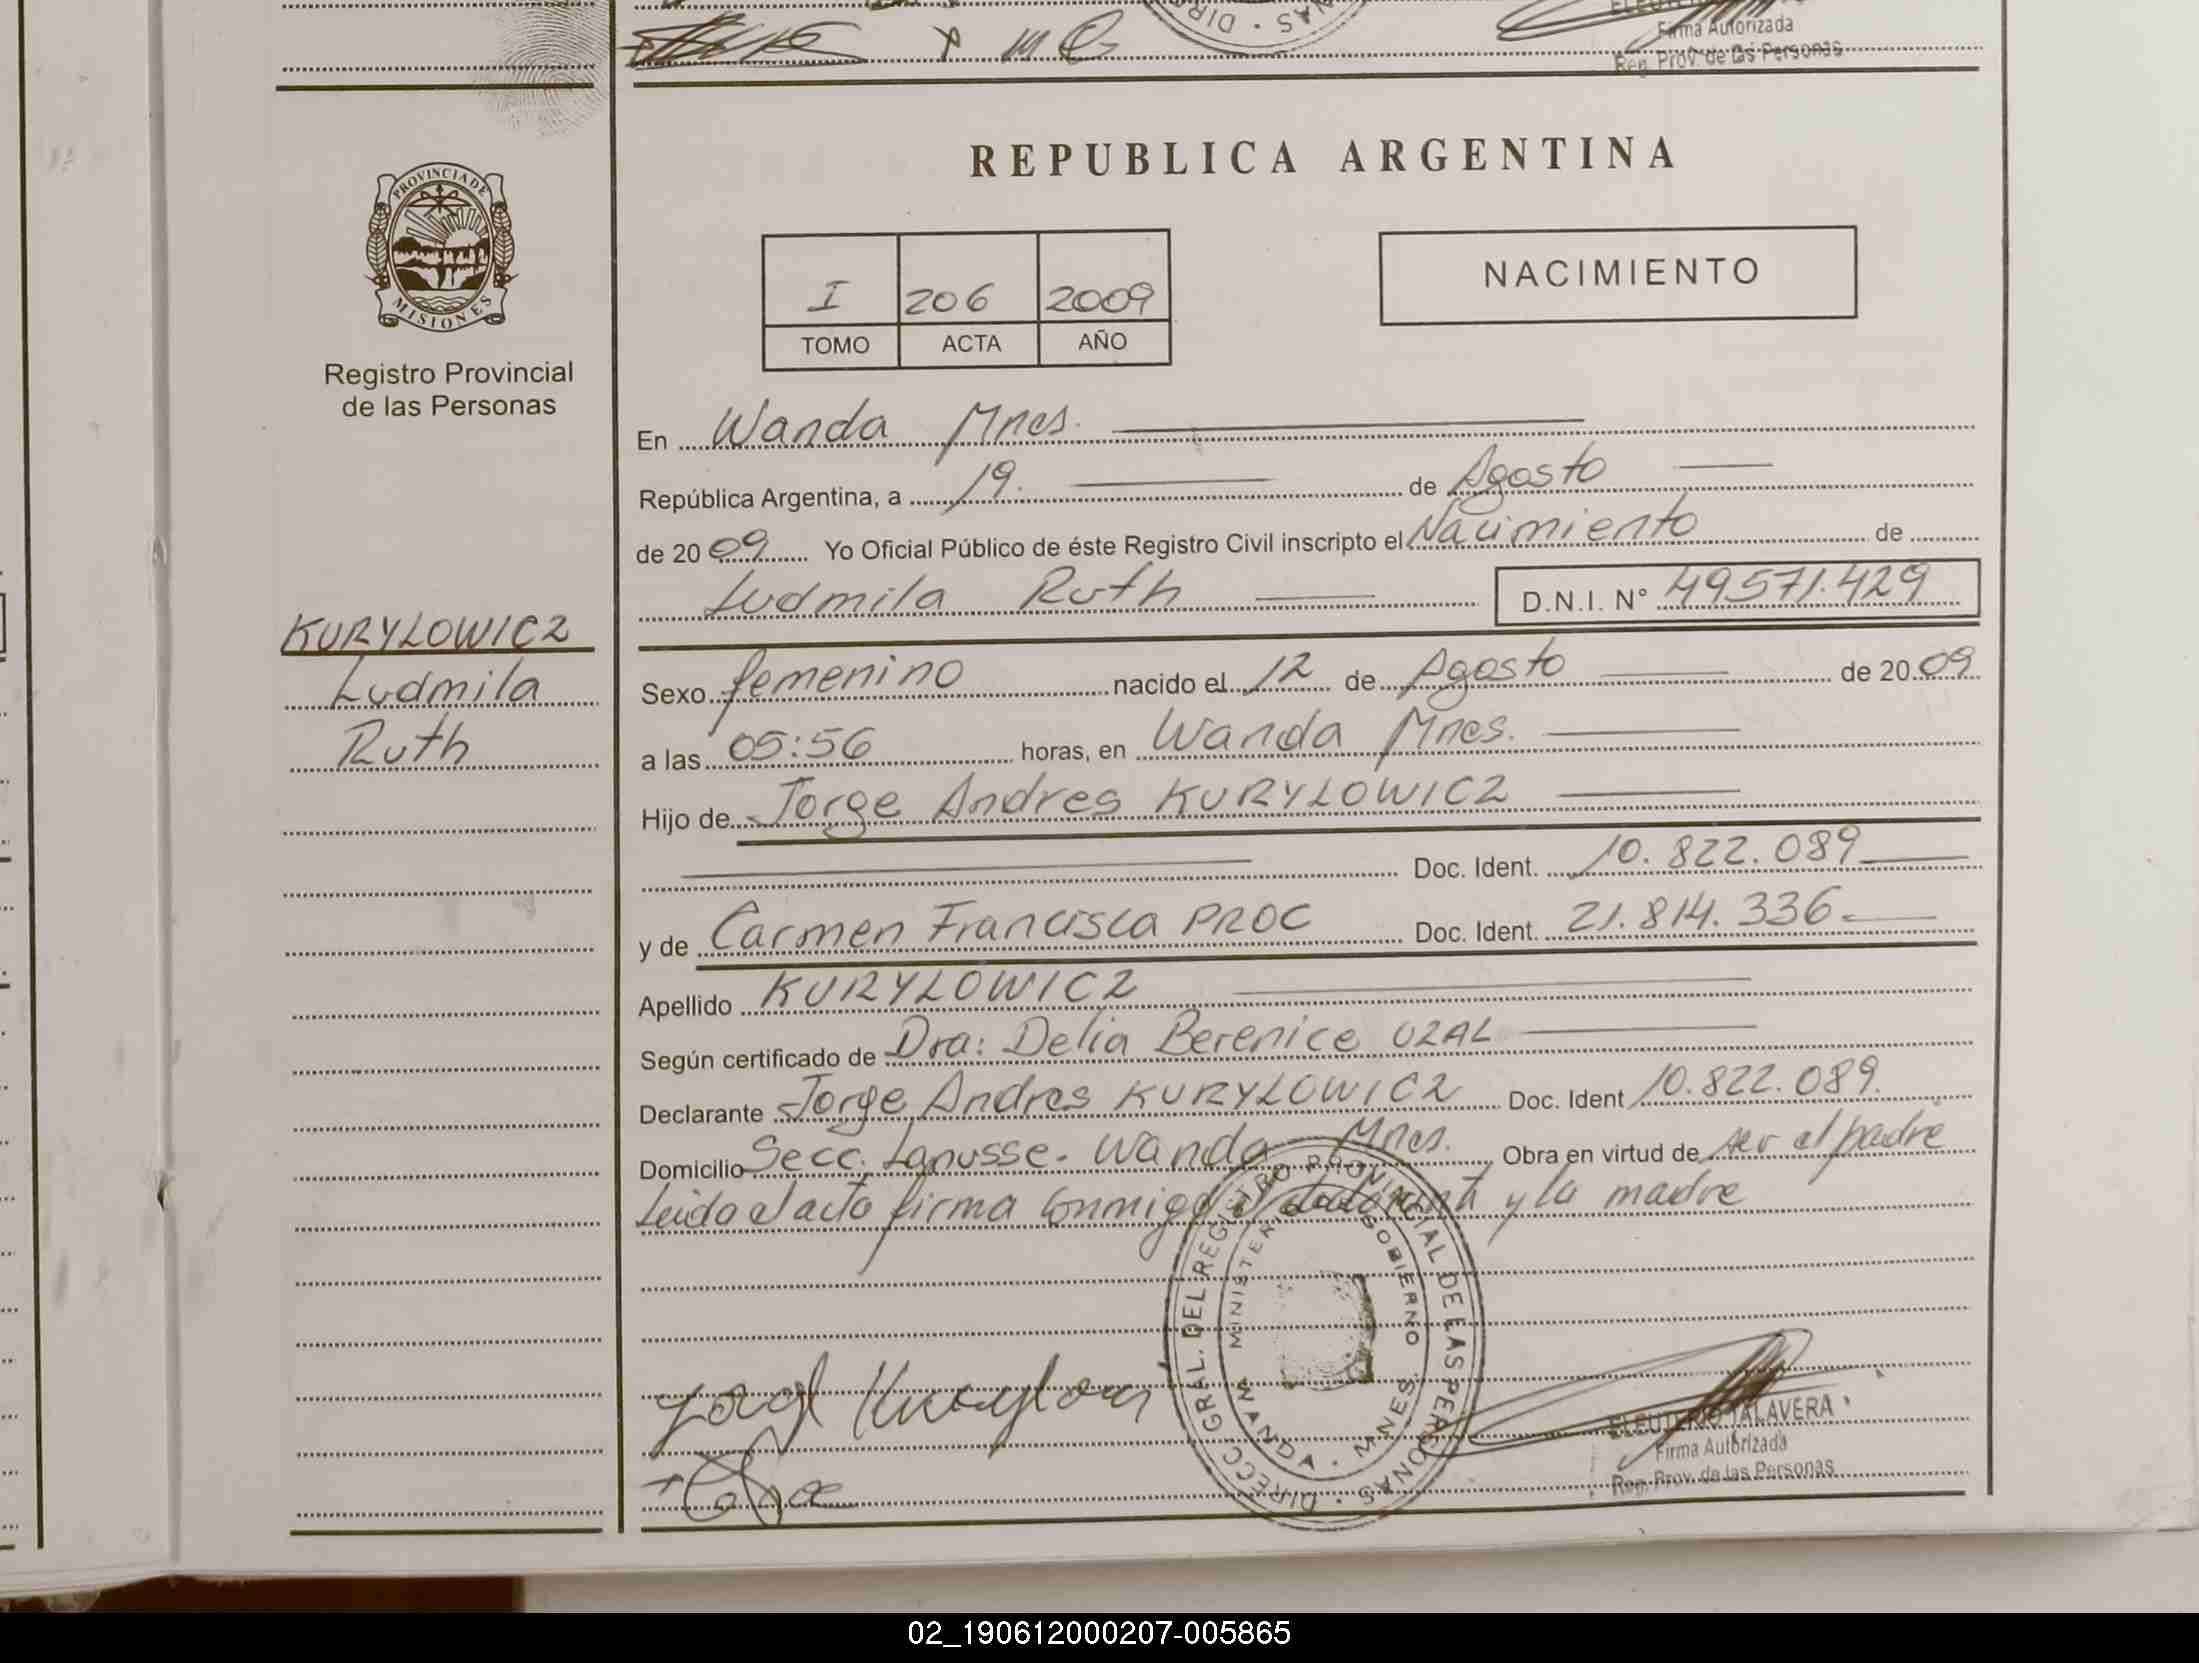 DIREC
NAS
Firma Autorizada
Reg. Prov. de las Personas
PROVINCIA DE
MISIONES
Registro Provincial
de las Personas
KURYLOWICZ
Ludmila
Ruth
REPUBLICA ARGENTINA
I 206 2009
TOMO ACTA AÑO
NACIMIENTO
En Wanda Mnes.
República Argentina, a 19. de Agosto
de 2009 Yo Oficial Público de éste Registro Civil inscripto el Nacimiento de
Ludmila Ruth D.N.I. N° 49571.429
Sexo femenino nacido el 12 de Agosto de 2009
a las 05:56 horas, en Wanda Mnes.
Hijo de Jorge Andres KURYLOWICZ
Doc. Ident. 10.822.089
y de Carmen Francisca PROC Doc. Ident. 21.814.336
Apellido KURYLOWICZ
Según certificado de Dra: Delia Berenice UZAL
Declarante Jorge Andres KURYLOWICZ Doc. Ident 10.822.089.
Domicilio Secc. Lanusse. Wanda Mnes. Obra en virtud de ser el padre
Leido el acto firma conmigo el declarante y la madre
DIRECC. GRAL. DEL REGISTRO PROVINCIAL DE LAS PERSONAS
MINISTERIO GOBIERNO
WANDA - MNES
ELEUTERIO TALAVERA
Firma Autorizada
Reg. Prov. de las Personas
02_190612000207-005865